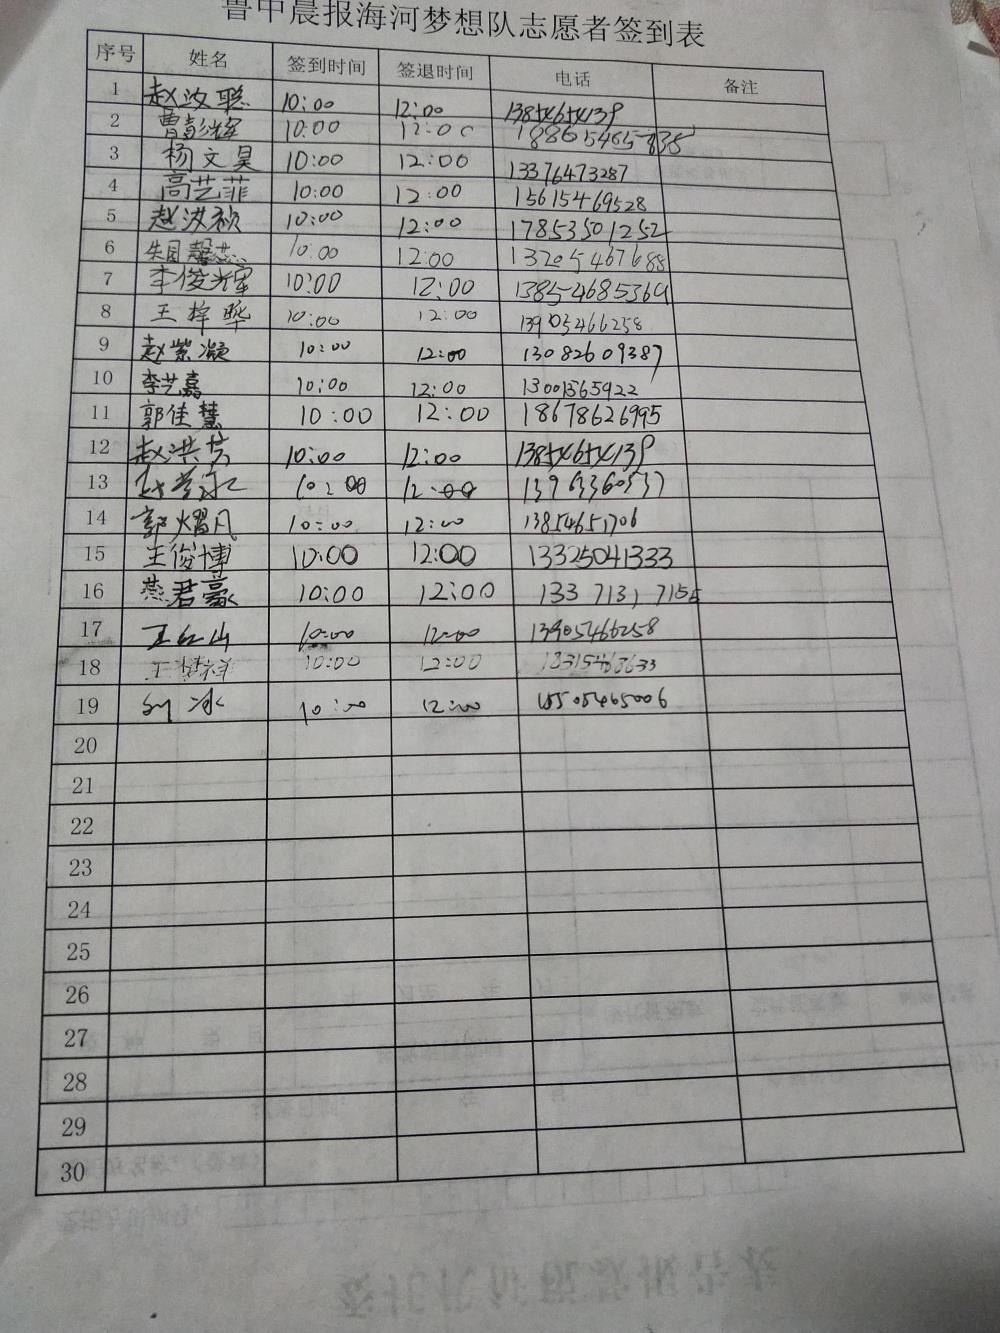 鲁中晨报海河梦想队志愿者签到表
序号 姓名 签到时间 签退时间 电话 备注
1 赵汝聪 10:00 12:00 13854654139
2 曹彭辉 10:00 12:00 18865465838
3 杨文昊 10:00 12:00 13376473287
4 高艺菲 10:00 12:00 15615469528
5 赵洪祯 10:00 12:00 17853501252
6 10:00 12:00 13205467688
7 李俊军 10:00 12:00 13854685364
8 王梓晔 10:00 12:00 13905466258
9 赵紫凝 10:00 12:00 13082609387
10 李艺嘉 10:00 12:00 13001565922
11 郭佳慧 10:00 12:00 18678626995
12 赵洪芳 10:00 12:00 13854654139
13 10:00 12:00 13963360537
14 郭熠凡 10:00 12:00 13854651706
15 王俊博 10:00 12:00 13325041333
16 燕君豪 10:00 12:00 13371317155
17 王红山 10:00 12:00 13905466258
18 王梦祥 10:00 12:00 18315463633
19 刘冰 10:00 12:00 15505465006
20
21
22
23
24
25
26
27
28
29
30